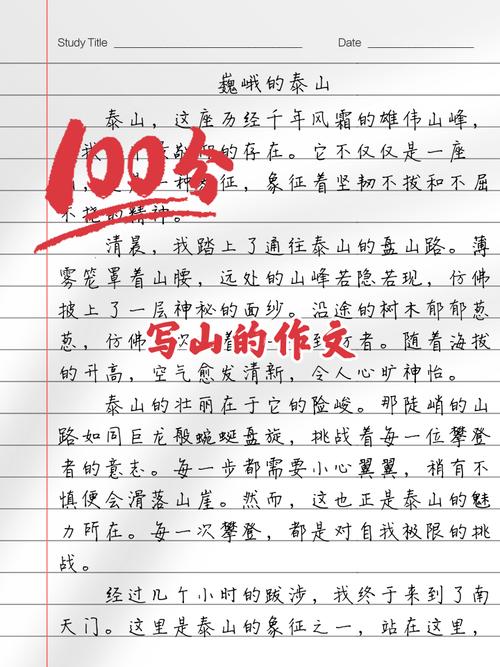 Study Title
Date
巍峨的泰山
泰山，这座历经千年风霜的雄伟山峰，
我 的存在。它不仅仅是一座
一种 征，象征着坚韧不拔和不屈
不挠的精神。
100分
清晨，我踏上了通往泰山的盘山路。薄
雾笼罩着山腰，远处的山峰若隐若现，仿佛
披上了一层神秘的面纱。沿途的树木郁郁葱
葱，仿佛 着 到 者。随着海拔
写山的作文
的升高，空气愈发清新，令人心旷神怡。
泰山的壮丽在于它的险峻。那陡峭的山
路如同巨龙般蜿蜒盘旋，挑战着每一位攀登
者的意志。每一步都需要小心翼翼，稍有不
慎便会滑落山崖。然而，这也正是泰山的魅
力所在。每一次攀登，都是对自我极限的挑
战。
经过几个小时的跋涉，我终于来到了南
天门。这里是泰山的象征之一，站在这里，